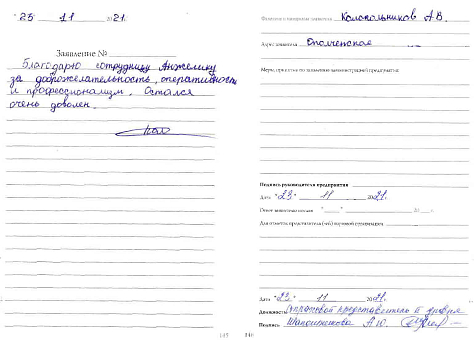 "25" 11 2021.
Заявление №
Благодарю сотрудницу Анжелику
за доброжелательность, оперативность
и профессионализм. Остался
очень доволен.
Фамилия и инициалы заявителя Колокольников А.В.
Адрес заявителя Ополченская
Меры, принятые по заявлению администрацией предприятия:
Подпись руководителя предприятия
Дата "23" 11 2021.
Ответ заявителю выслан " " 20 г.
Для отметок представителя (ей) торговой
Дата "23" 11 2021.
Должность представитель II уровня
Подпись А.Ю.